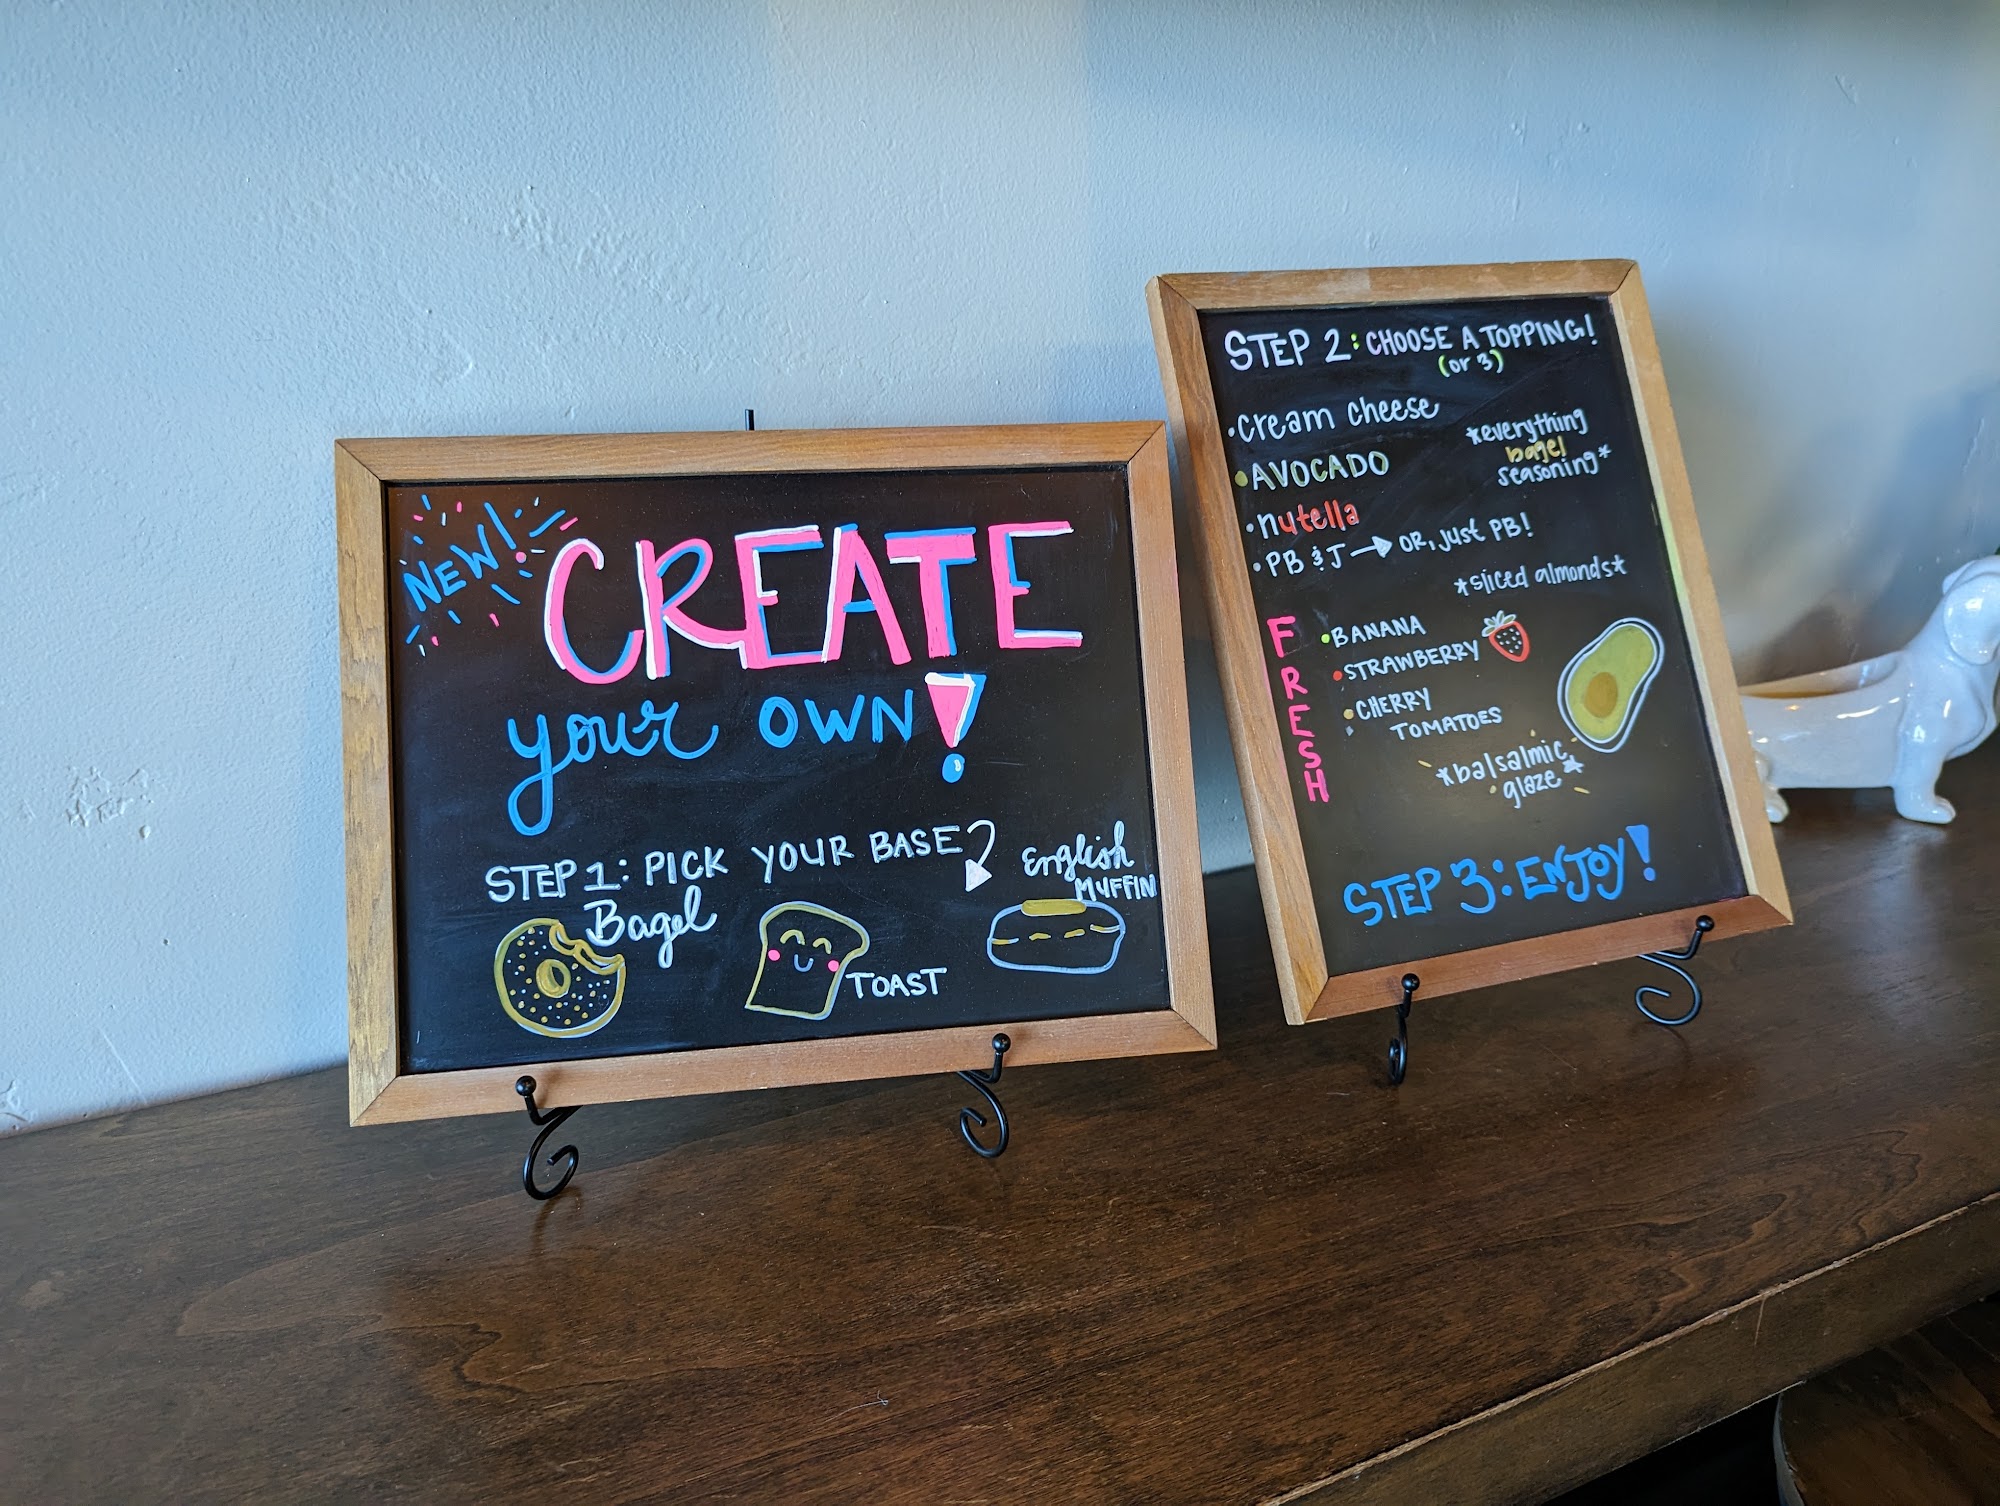 NEW!
CREATE
your OWN!
STEP 1: PICK YOUR BASE
Bagel
TOAST
English
MUFFIN
STEP 2: CHOOSE A TOPPING!
(or 3)
•cream cheese
•AVOCADO
•nutella
•PB & J → OR, just PB!
*everything
bagel
seasoning*
*sliced almonds*
FRESH
•BANANA
•STRAWBERRY
•CHERRY
TOMATOES
*balsalmic
glaze*
STEP 3: ENJOY!